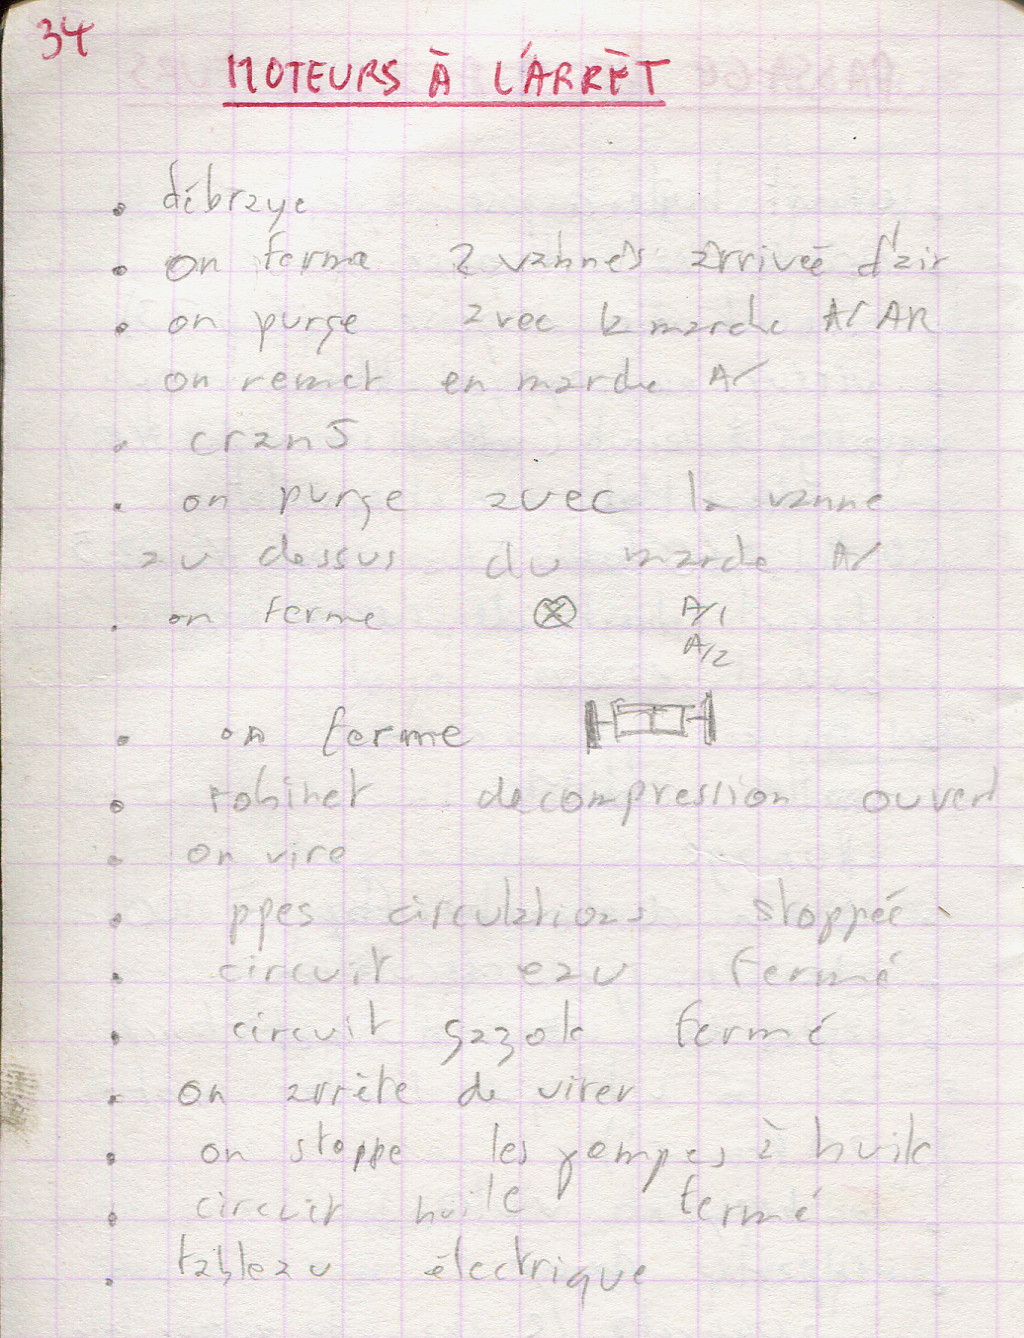 34
MOTEURS À L'ARRÊT
• débraye
• on ferme 2 vannes arrivée d'air
• on purge avec la marche A/ AR
on remet en marche A/
• cran 5
• on purge avec la vanne
au dessus du marche A/
• on ferme ⊗ A/1
A/2
• on ferme
• robinet decompression ouvert
• on vire
• ppes circulations stoppée
• circuit eau fermé
• circuit gazole fermé
• on arrête de virer
• on stoppe les pompes à huile
• circuit huile fermé
• tableau électrique